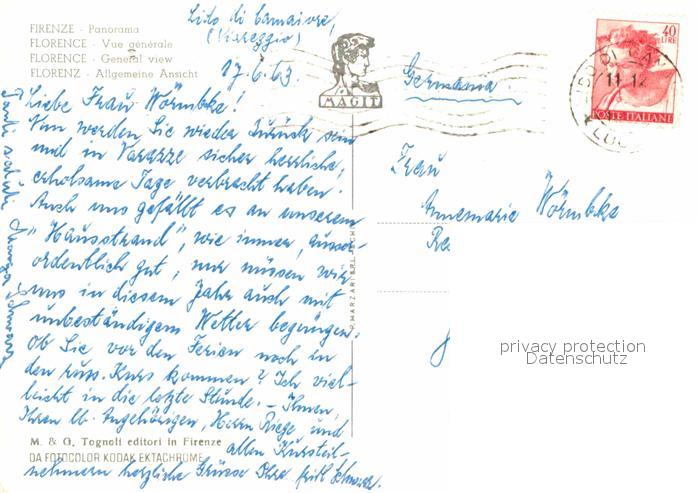 FIRENZE - Panorama
FLORENCE - Vue générale
FLORENCE - General view
FLORENZ - Allgemeine Ansicht
Lido di Camaiore,
(Viareggio)
17.6.63.
Liebe Frau Wörmbke!
Nun werden Sie wieder zurück sein
und in Varazze sicher herrliche,
erholsame Tage verbracht haben.
Auch uns gefällt es an unserem
"Hausstrand", wie immer, ausser-
ordentlich gut, nur müssen wir
uns in diesem Jahr auch mit
unbeständigem Wetter begnügen.
Ob Sie vor den Ferien noch in
den russ. Kurs kommen? Ich viel-
leicht in die letzte Stunde. - Ihnen,
Ihren lb. Angehörigen, Herrn Riege und
allen Kursteil-
nehmern herzliche Grüsse Ihre
Tanti saluti
M. & G. Tognoli editori in Firenze
DA FOTOCOLOR KODAK EKTACHROME
MAGIT
40
LIRE
POSTE ITALIANE
11-12
Germania.
Frau
Annemarie Wörmbke
privacy protection
Datenschutz